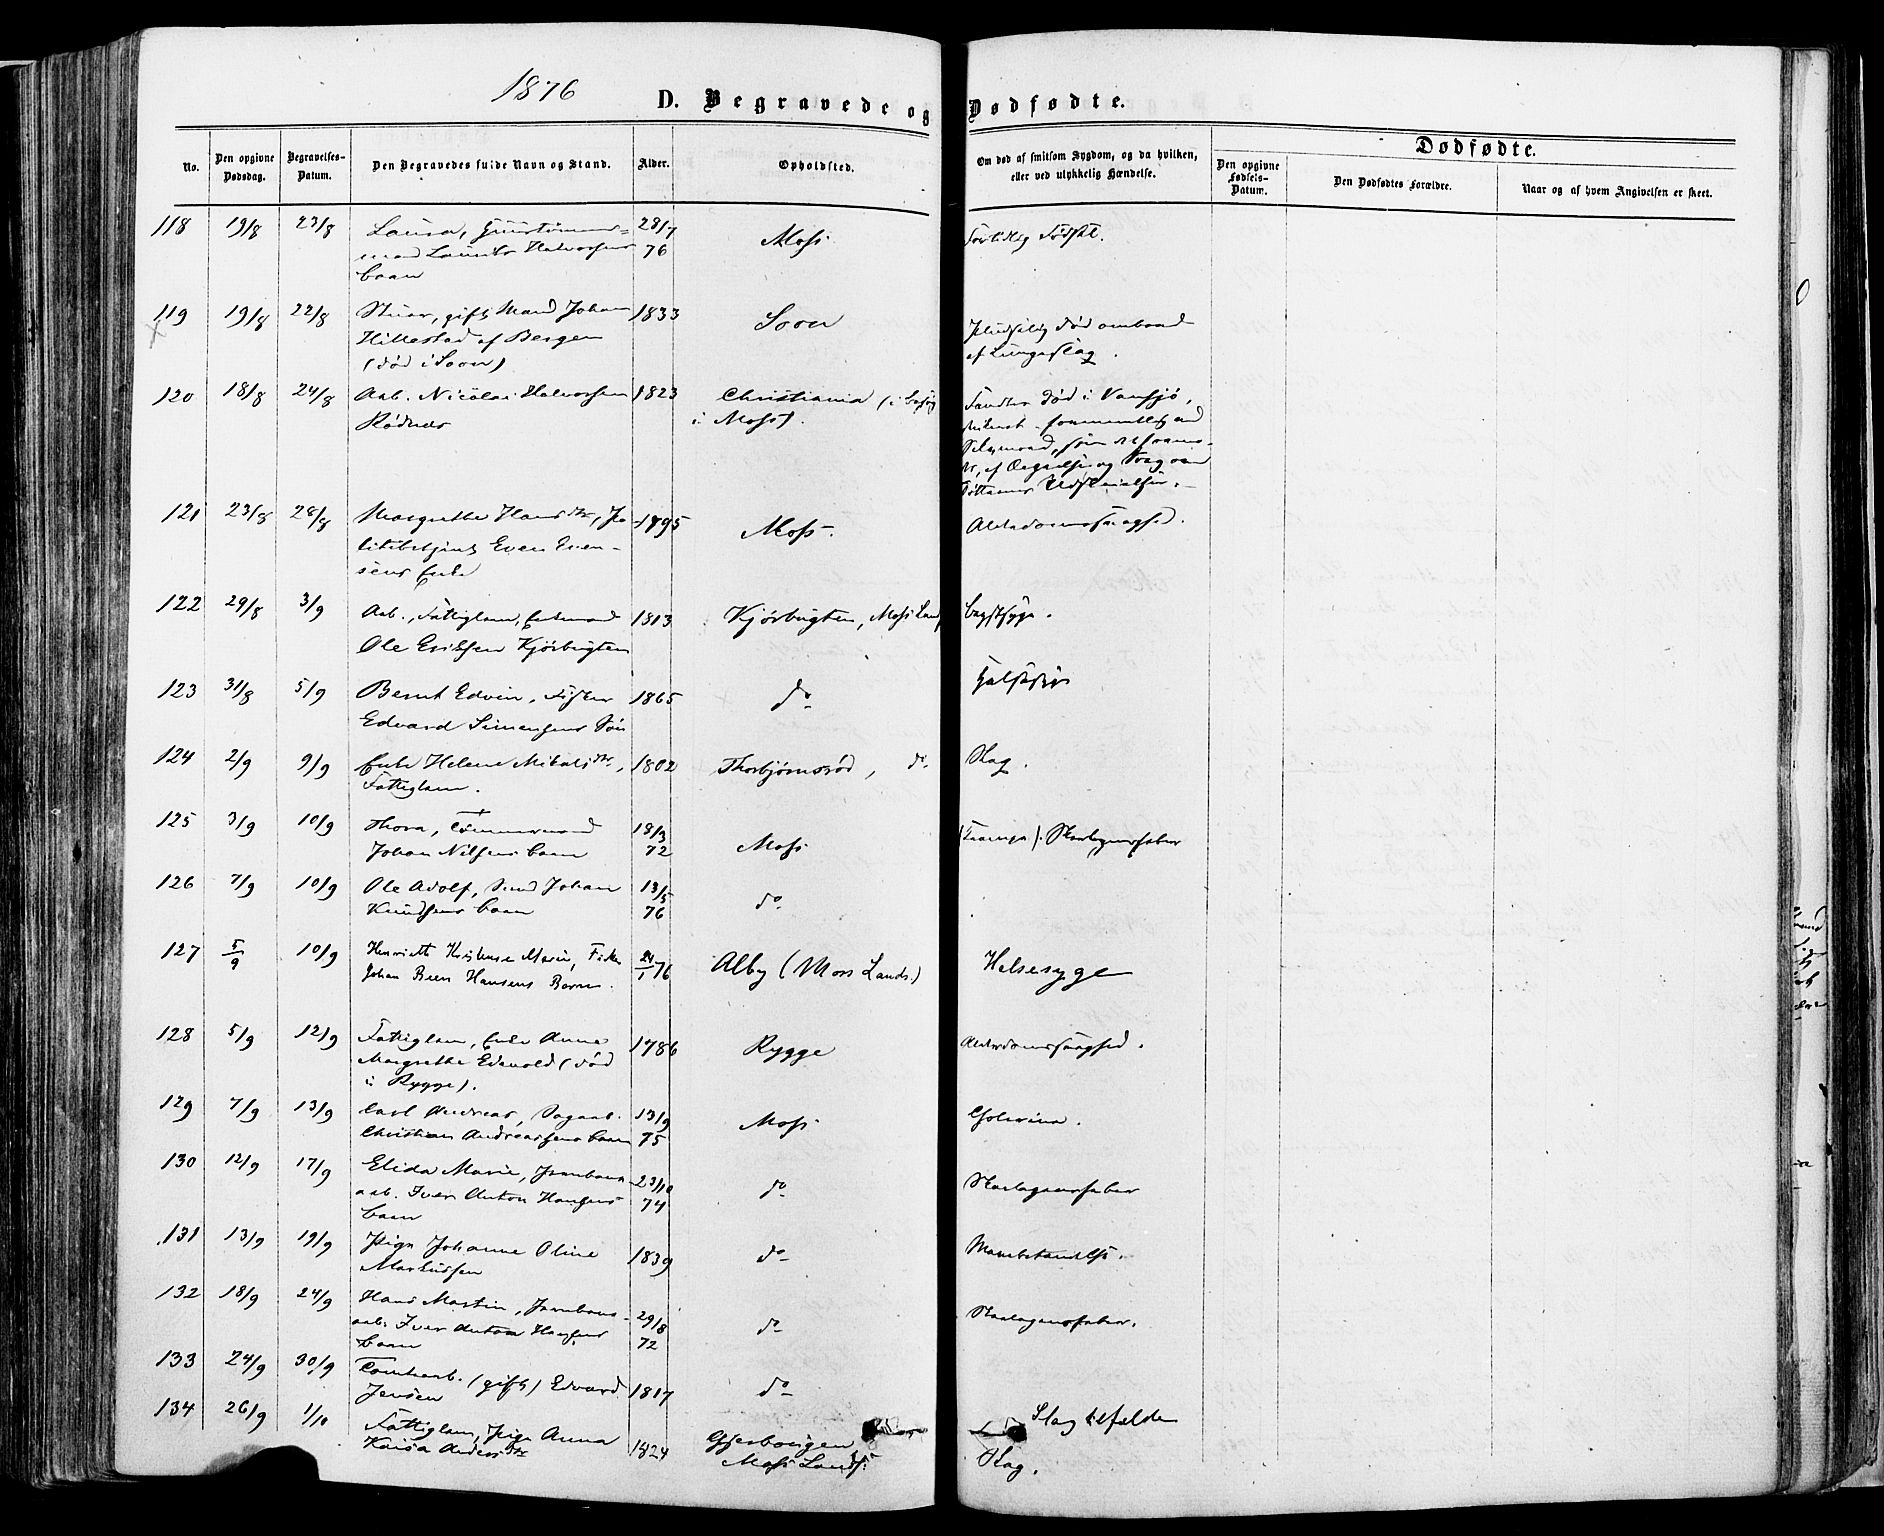 1876
D. Begravede og Dødfødte.
No.
Den opgivne Dødsdag.
Begravelses-Datum.
Den Begravedes fulde Navn og Stand.
Alder.
Opholdsted.
Om død af smitsom Sygdom, og da hvilken,
eller ved ulykkelig Hændelse.
Dødfødte.
Den opgivne Fødsels-Datum.
Den Dødfødtes Forældre.
Naar og af hvem Angivelsen er skeet.
118 19/8 23/8 Laura, 28/7 Moss For tidlig Födsel.
Laurits Halvorsens 76
barn
119 19/8 22/8 gift Mand Johan 1833 Soon Pludselig død ombord
Hillestad af Bergen af Lungeslag.
(død i Soon)
120 18/8 24/8 Arb. Nicolai Halvorsen 1823 Christiania (i besøg
Rødnes i Moss). Fundten død i Vansjø,
121 23/8 28/8 Margrethe Hansdtr, Po- 1795 Moss. Alderdomssvaghed.
litibetjent Even Even-
sens Enke
122 29/8 3/9 Arb., Fattiglem, Enkemand 1813 Kjørbugten, Moss Lands Brystsyge.
Ole Eriksen Kjørbugten
123 31/8 5/9 Bernt Edvin, Fisker 1865 do Halssyge
Edvard Simensens Søn
124 2/9 9/9 Enke Helene Mikalsdtr, 1802 Thorbjørnsrød, do Slag.
Fattiglem.
125 3/9 10/9 Thora, Tømmermand 18/3 Moss (Krampe). Skarlagensfeber
Johan Nilsens barn 72
126 7/9 10/9 Ole Adolf, Smed Johan 13/5 do
Knudsens barn 76
127 5/9 10/9 Henriette Marie, Fisker 24/1 76 Alby (Moss Lands.) Halsesyge
Johan Hansens Barn.
128 5/9 12/9 Fattiglem, Enke Anne 1786 Rygge Alderdomssvaghed.
Margrethe Edevold (død
i Rygge).
129 7/9 13/9 Carl Andreas, Sagarb. 13/9 Moss Cholerina.
Christian Andreassens barn 75
130 12/9 17/9 Elida Marie, Jernbane- 23/10 do Skarlagensfeber
arb. Iver Anton Hansens 74
barn
131 13/9 19/9 Pige Johanne Oline 1839 do
Markussen
132 18/9 24/9 Hans Martin, Jernbane- 29/8 do Skarlagensfeber.
arb. Iver Anton Hansens 72
barn
133 24/9 30/9 Tomtearb. (gift) Edvard 1817 do Slagtilfælde
Jensen
134 26/9 1/10 Fattiglem, Pige Anna 1824 Slag.
Kaisa Andersdtr Moss Lands.